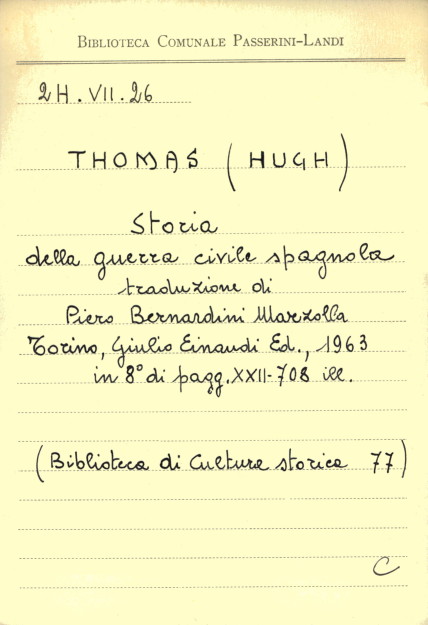 BIBLIOTECA COMUNALE PASSERINI-LANDI
2H.VII.26
THOMAS (HUGH)
Storia
della guerra civile spagnola
traduzione di
Piero Bernardini Marzolla
Torino, Giulio Einaudi Ed., 1963
in 8° di pagg. XXII-708 ill.
(Biblioteca di Cultura storica 77)
C